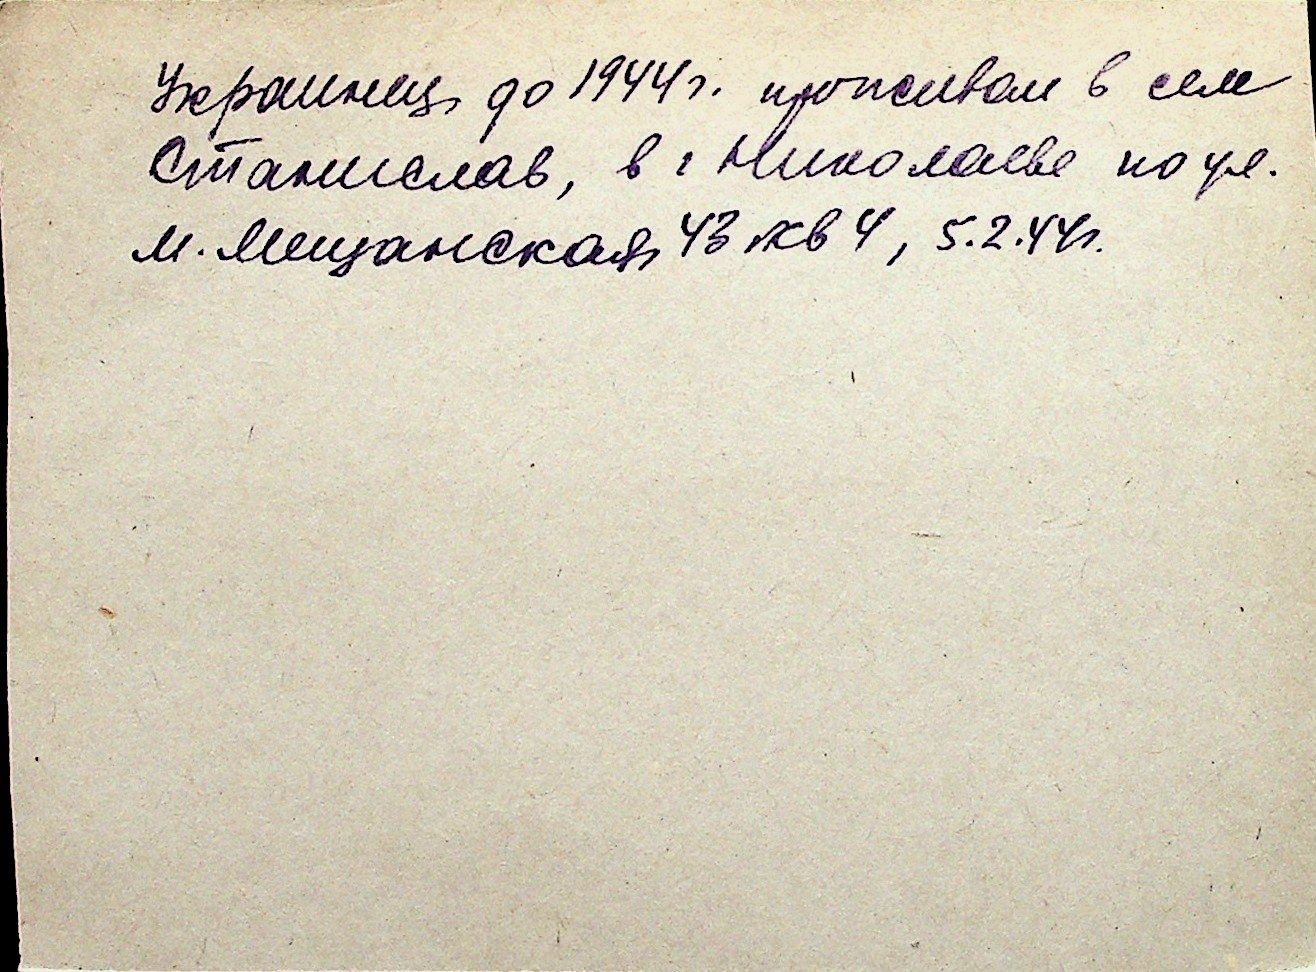 Украинец, до 1944г. проживал в селе
Станислав, в г Николаеве по ул.
М. Мещанская, 43 кв 4, 5.2.44г.